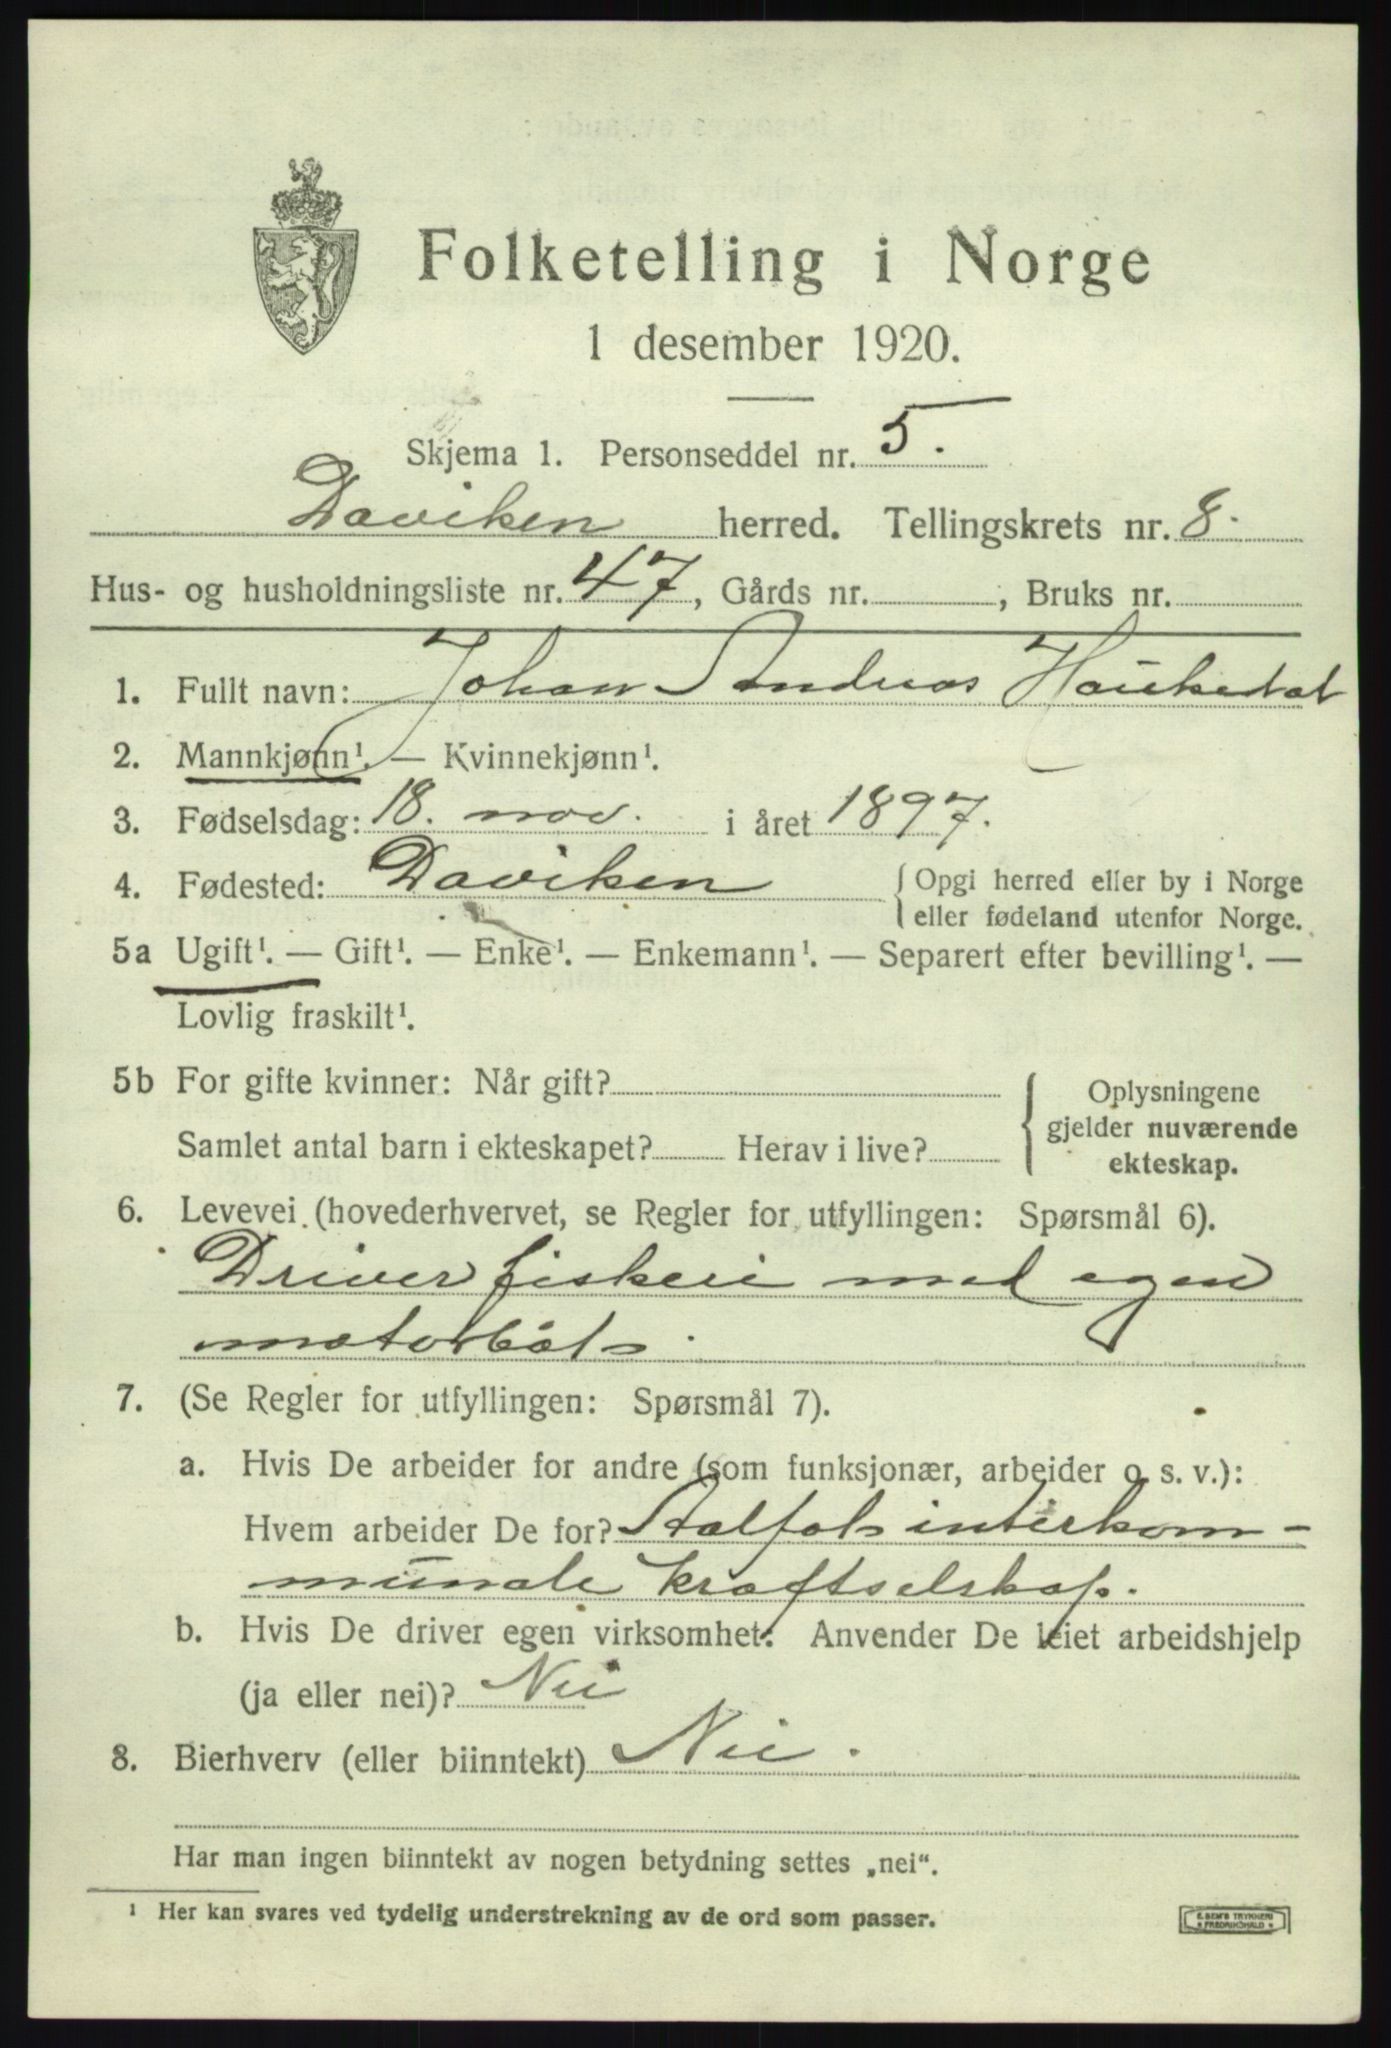 Folketelling i Norge
1 desember 1920.
Skjema 1. Personseddel nr. 5.
Daviken herred. Tellingskrets nr. 8.
Hus- og husholdningsliste nr. 47, Gårds nr. , Bruks nr.
1. Fullt navn: Johan Andreas Haukedal
2. Mannkjønn¹. — Kvinnekjønn¹.
3. Fødselsdag: 18. nov. i året 1897.
4. Fødested: Daviken { Opgi herred eller by i Norge
eller fødeland utenfor Norge.
5a Ugift¹. — Gift¹. — Enke¹. — Enkemann¹. — Separert efter bevilling¹. —
Lovlig fraskilt¹.
5b For gifte kvinner: Når gift? Oplysningene
gjelder nuværende
Samlet antal barn i ekteskapet? Herav i live? ekteskap.
6. Levevei (hovederhvervet, se Regler for utfyllingen: Spørsmål 6).
Driver fiskeri med egen
motorbåt.
7. (Se Regler for utfyllingen: Spørsmål 7).
a. Hvis De arbeider for andre (som funksjonær, arbeider o. s. v.):
Hvem arbeider De for? Aalfot interkom-
munale kraftselskap.
b. Hvis De driver egen virksomhet: Anvender De leiet arbeidshjelp
(ja eller nei)? Nei
8. Bierhverv (eller biinntekt) Nei.
Har man ingen biinntekt av nogen betydning settes „nei“.
¹ Her kan svares ved tydelig understrekning av de ord som passer.
E. SEM'S TRYKKERI
FREDRIKSHALD